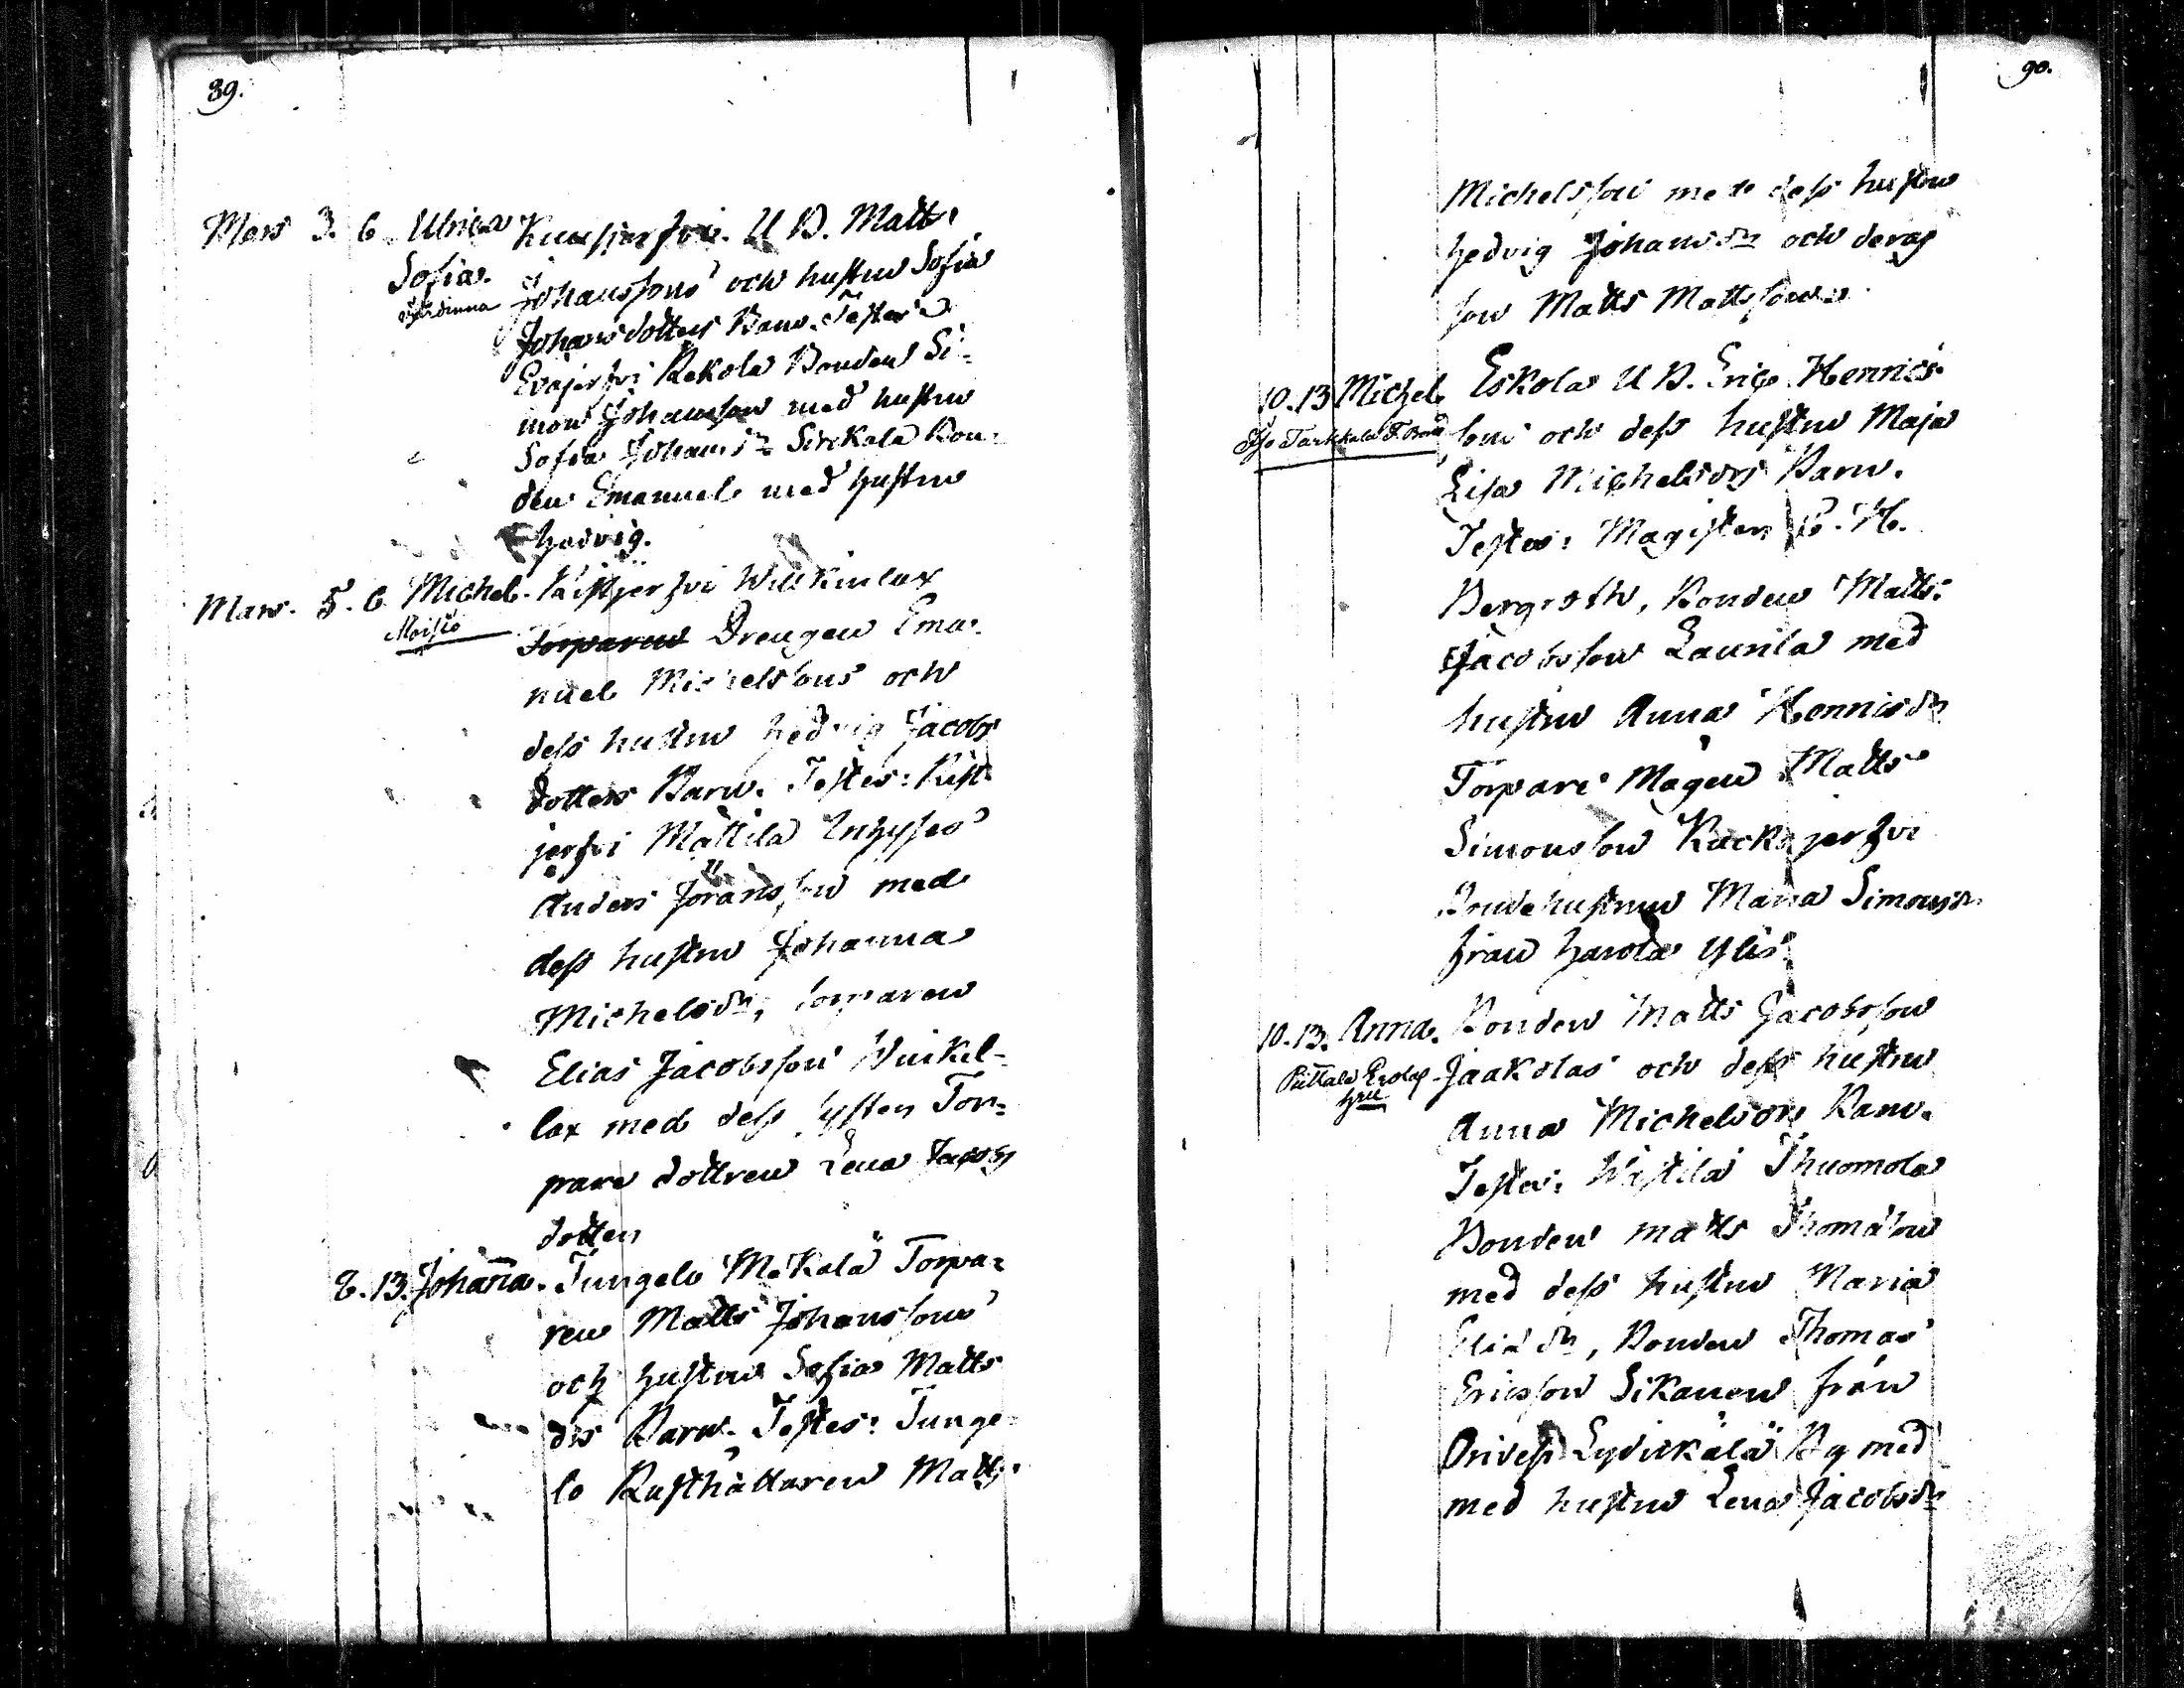 89.
Mars 3. 6. Ulrica Kuusjerfvi. U B. Matts
Sofia. Johanssons och hustru Sofia
Johansdotters Barn. Testes:
Eväjerfvi Rekola Bonden Si-
mon Johansson med hustru
Sofia Johansdr Sirkala Bon-
den Emanuel med hustru
Hedvig.
Mars. 5. 6. Michel. Kistjerfvi Willkinlax
Moisio
Torparen Drengen Ema-
nuel Michelssons och
dess hustru Hedvig Jacobs
dotters Barn. Testes: Kist-
jerfvi Mattila Inhyses
Anders Jöransson med
dess hustru Johanna
Michelsdr, torparen
Elias Jacobsson Winkel-
lax med dess syster Tor-
pare dottren Lena
dotter
8. 13. Johanna. Jungelo Mäkelä Torpa-
ren Matts Johanssons
och hustru Sofia Matts
drs Barn. Testes: Junge-
lo Rusthållaren Matts
90.
Michelsson med dess hustru
Hedvig Johansdr och deras
son Matts Mattsson.
10. 13 Michel. Eskola U B. Eric Henrics
son och dess hustru Maja
Lisa Michelsdrs Barn.
Testes: Magister B. H.
Bergroth, Bonden Matts
Jacobsson Launila med
hustru Anna Henricsdr
Torpare Mågen Matts
Simonsson Kackjerfvi
Bondehustrun Maria Simonsdr
från Harola Ylis.
10. 13. Anna. Bonden Matts Jacobsson
Jaakolas och dess hustru
Anna Michelsdrs Barn.
Testes: Wästilä Thuomola
Bonden Matts Thomasson
med dess hustru Maria
Eliædr, Bonden Thomas
Ericsson Sikanen från
Orivesi Lydickälä By med
med hustru Lena Jacobsdr